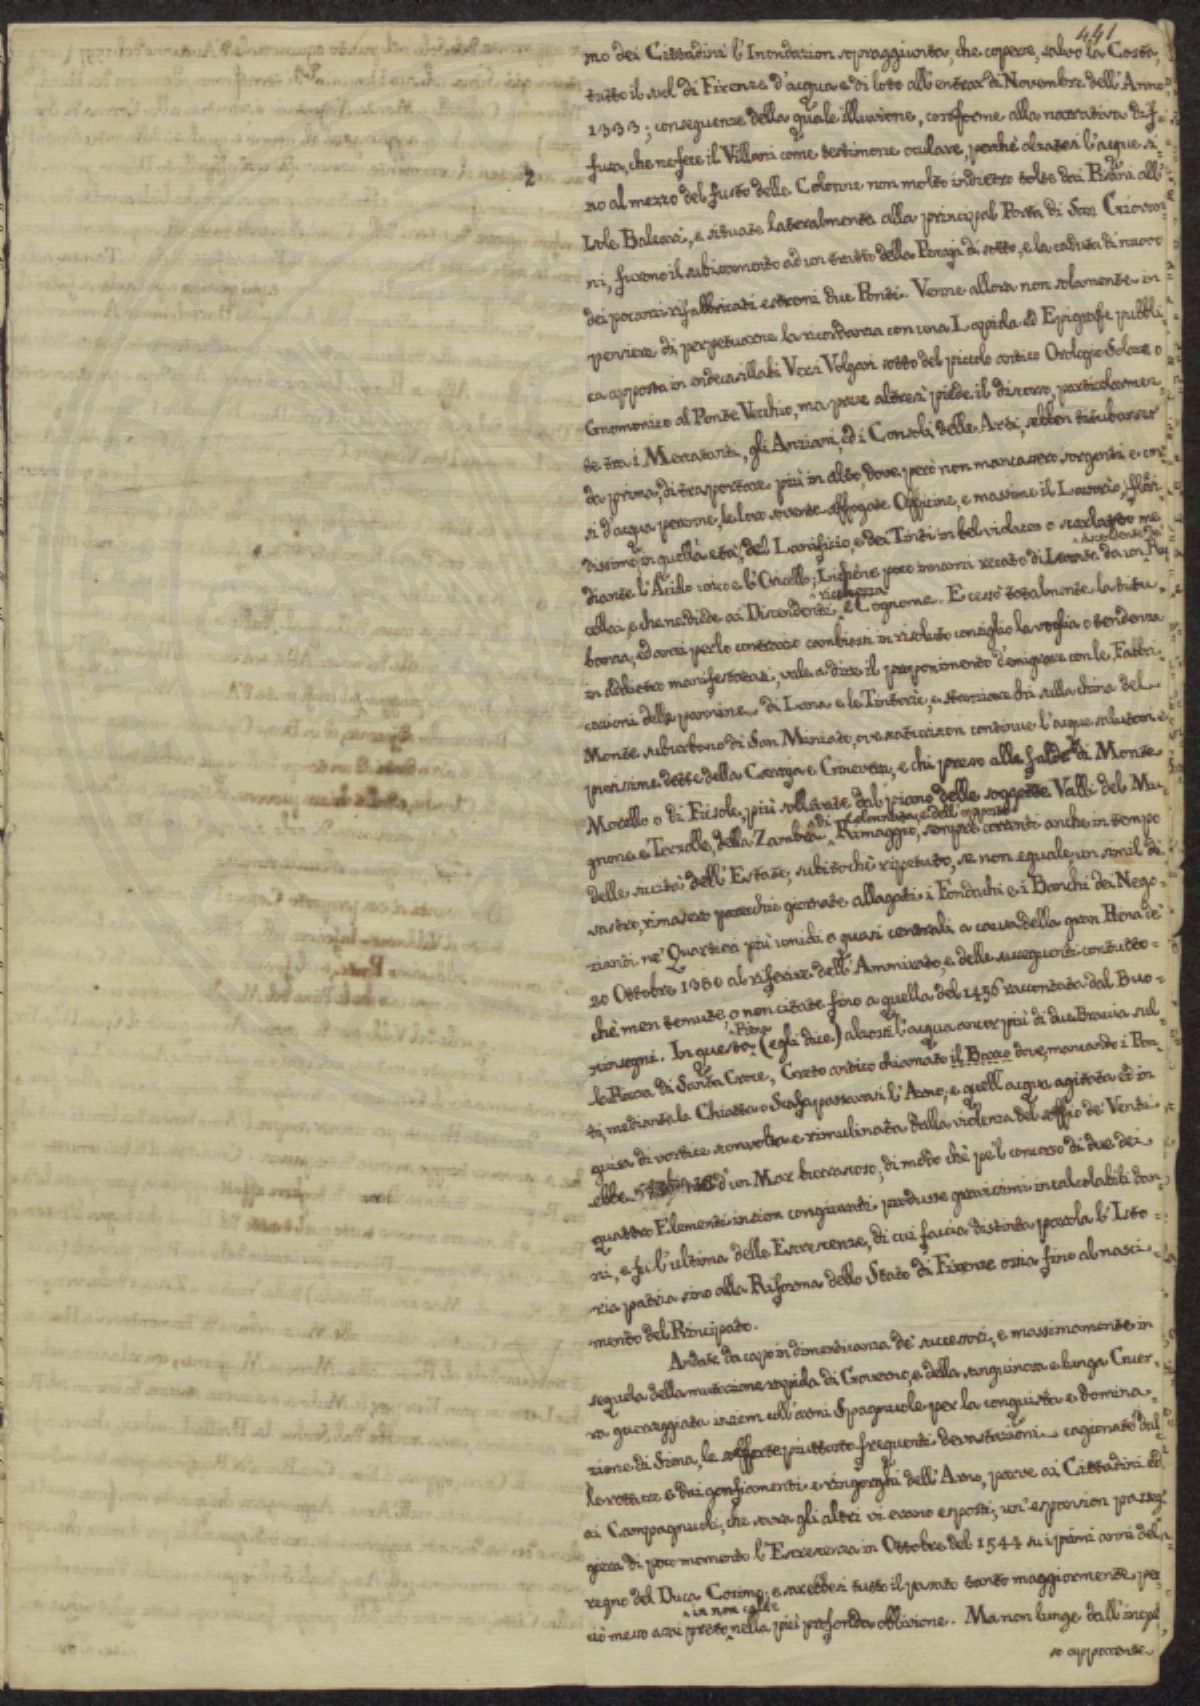 441
2
mo dei Cittadini l'Inondazion sopraggiunta, che coperse, salvo la Costa,
tutto il suol di Firenze d'acqua e di loto all'entrar di Novembre dell'Anno
1333; conseguenze della quale illuvione, conforme alla narrativa dif-
fusa, che ne fece il Villani come testimone oculare, perchè alzatesi l'acque si-
no al mezzo del fusto delle Colonne non molto indietro tolte dai Pisani all'
Isole Baleari, e situate lateralmente alla principal Porta di San Giovan-
ni, furono il subissamento ad un tratto della Pescaja di sotto, e la caduta di nuovo
dei poc'anzi rifabbricati estremi due Ponti. Venne allora non solamente in
pensiere di perpetuarne la ricordanza con una Lapida ed Epigrafe pubbli-
ca apposta in endecasillabi Versi Volgari sotto del piccolo antico Orologio Solare o
Gnomonico al Ponte Vecchio, ma pure altresì piede il discorso, particolarmen-
te tra i Mercatanti, gli Anziani, ed i Consoli delle Arti, sebben titubasser
da prima, di trasportare più in alto, dove però non mancassero sorgenti e cor-
si d'acqua perenne, le loro sovente affogate Officine, e massime il Lavorio, flori-
dissimo in quella età, del Lanificio, e dei Tinti in bel violaceo o scarlatto me-
diante l'Acido e l'Oricello; Lichene poco innanzi recato di Levante da un Ru-
ascendente de'
cellai, e che ne diede ai Discendenti e Cognome. E cessò totalmente la titu-
ricchezza
banza, ed anzi per lo contrario cambiossi in risoluto consiglio la voglia o tendenza
in addietro manifestatasi, vale a dire il proponimento d'emigrare con le Fabbri-
cazioni delle pannine di Lana e le Tintorie, e stanziare chi sulla china del
Monte suburbano di San Miniato, ove scaturiscon continue l'acque salutari e
purissime dette della Carraja e Ginevra, e chi presso alle falde di Monte
Morello o di Fiesole, più sollevate dal piano delle soggette Valli del Mu-
gnone e Terzolle, della Zambra, Rimaggio, sempre correnti anche in tempo
di Colonnata, e dell'opposto
delle siccità dell'Estate, subitochè ripetuto, se non eguale, un simil di-
sastro, rimasero parecchie giornate allagati i Fondachi e i Banchi dei Nego-
zianti ne' Quartieri più umidi o quasi centrali a causa della gran Piena de'
20 Ottobre 1380 al riferire dell'Ammirato, e delle susseguenti contutto-
chè men temute o non citate fino a quella del 1456 raccontata dal Buo-
ninsegni. In questa (egli dice) alzossi l'acqua ancor più di due Braccia sul-
Piena
la Piazza di Santa Croce, Greto antico chiamato il Borro dove, mancando i Pon-
ti, mediante la Chiatta o Scafa passavasi l'Arno; e quell'acqua agitata ed in
guisa di vortice sconvolta e rimulinata dalla violenza del soffio de' Venti
ebbe d'un Mar burrascoso, di modo chè pe'l concorso di due dei
quattro Elementi insiem congiurati produsse gravissimi incalcolabili dan-
ni, e fu l'ultima delle Escrescenze, di cui faccia distinta parola l'Isto-
ria patria sino alla Riforma dello Stato di Firenze ossia fino al nasci-
mento del Principato.
Andate da capo in dimenticanza de' successori, e massimamente in
sequela della mutazione rapida di Governo, e della sanguinosa e lunga Guer-
ra guerreggiata insiem coll'armi Spagnuole per la conquista e domina-
zione di Siena, le sofferte piuttosto frequenti devastazioni cagionate dal-
le rotture e dai gonfiamenti e ringorghi dell'Arno, parve ai Cittadini ed
ai Campagnuoli, che sovra gli altri vi erano esposti, un'espansion passeg-
giera di poco momento l'Escrescenza in Ottobre del 1544 su i primi anni del
regno del Duca Cosimo; e sarebbesi tutto il passato tanto maggiormente per-
ciò messo assai presto nella più profonda oblivione. Ma non lunge dall'inope-
in non cale e
so apparente